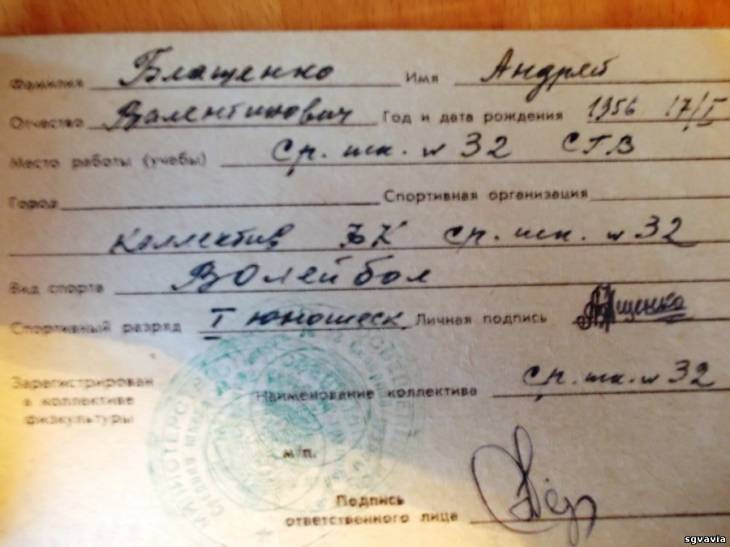 Фамилия Блащенко Имя Андрей
Отчество Валентинович Год и дата рождения 1956 17/I
Место работы (учебы) Ср. шк. № 32 СГВ
Город Спортивная организация
Коллектив ср. шк. № 32
Вид спорта Волейбол
Спортивный разряд I юношеск Личная подпись
Зарегистрирован
в коллективе
физкультуры
Наименование коллектива ср. шк. № 32
м/п.
Подпись
ответственного лица
sgvavia